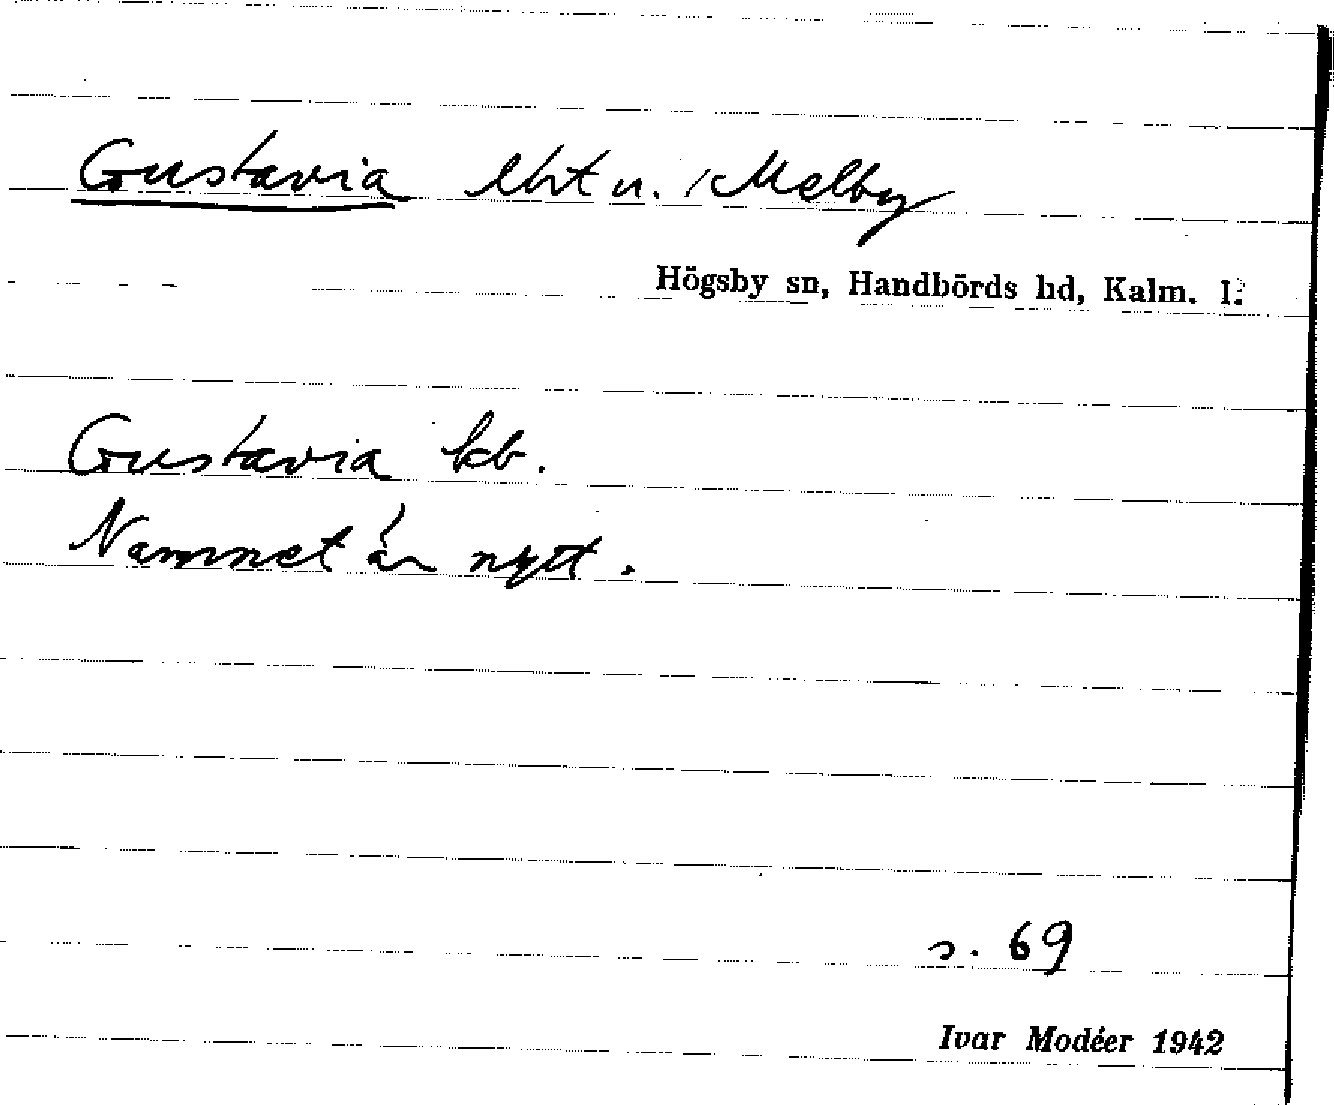 Gustavia lht u. Melby
Högsby sn, Handbörds hd, Kalm. L.
Gustavia kb.
Namnet är nytt.
s. 69
Ivar Modéer 1942